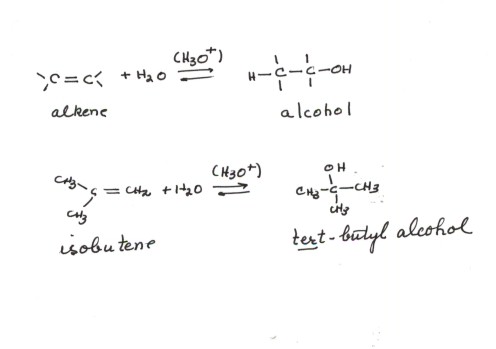 (H3O+)
C=C + H2O ⇌ H-C-C-OH
alkene alcohol
(H3O+)
CH3
C=CH2 + H2O ⇌ CH3-C-CH3
CH3
OH
CH3
isobutene tert-butyl alcohol